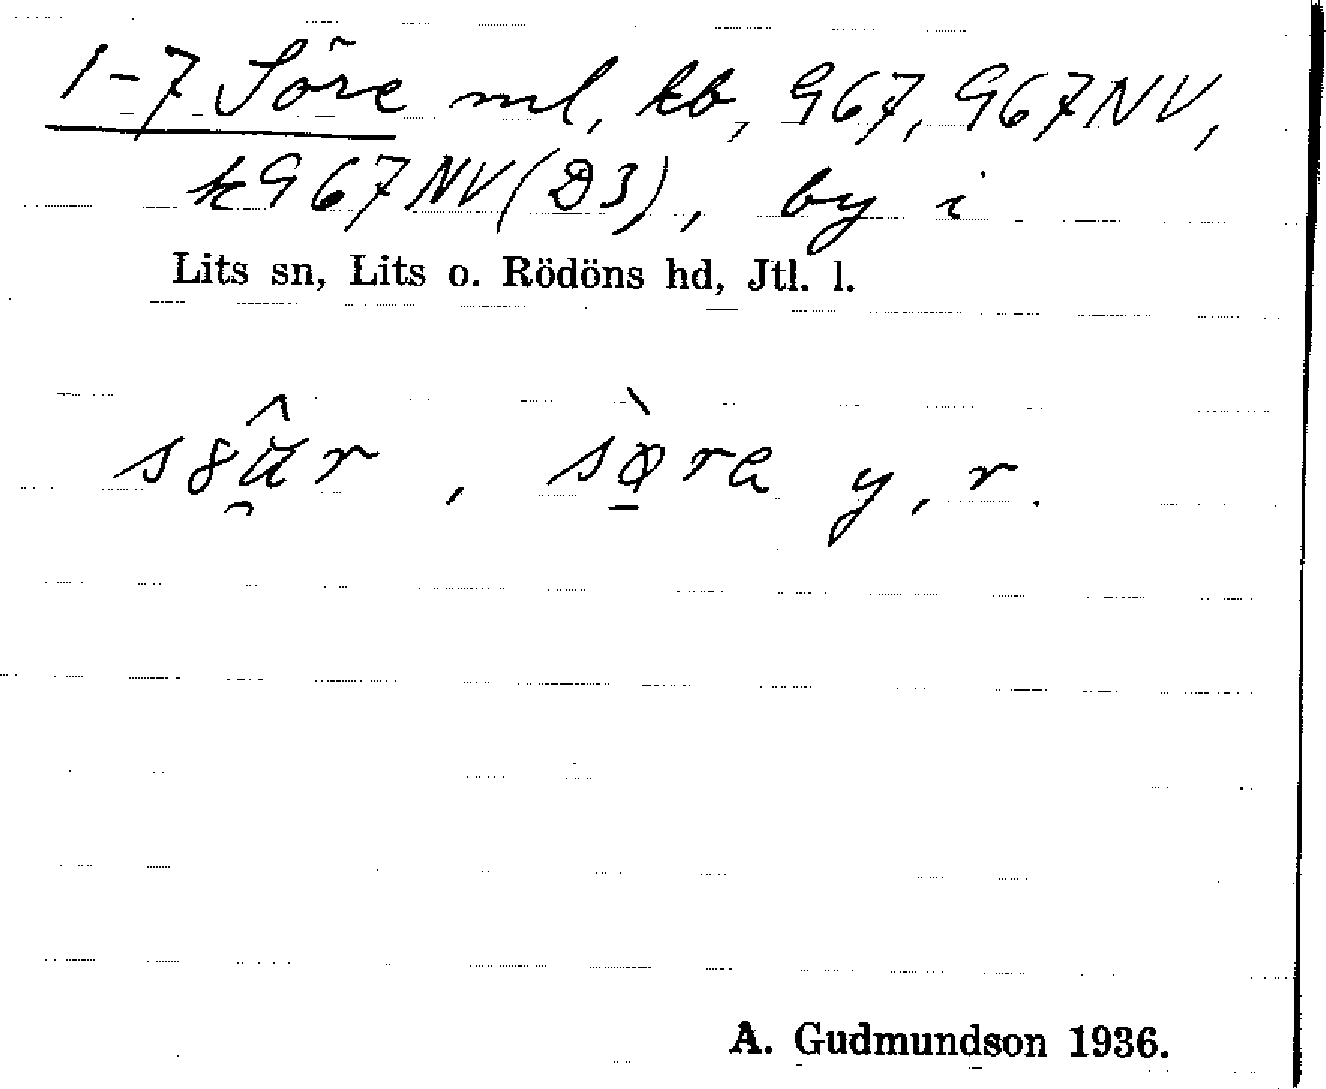 1-7 Söre ml, kb, G67, G67NV,
kG67NV(D3), by i
Lits sn, Lits o. Rödöns hd, Jtl. l.
y, r.
A. Gudmundson 1936.